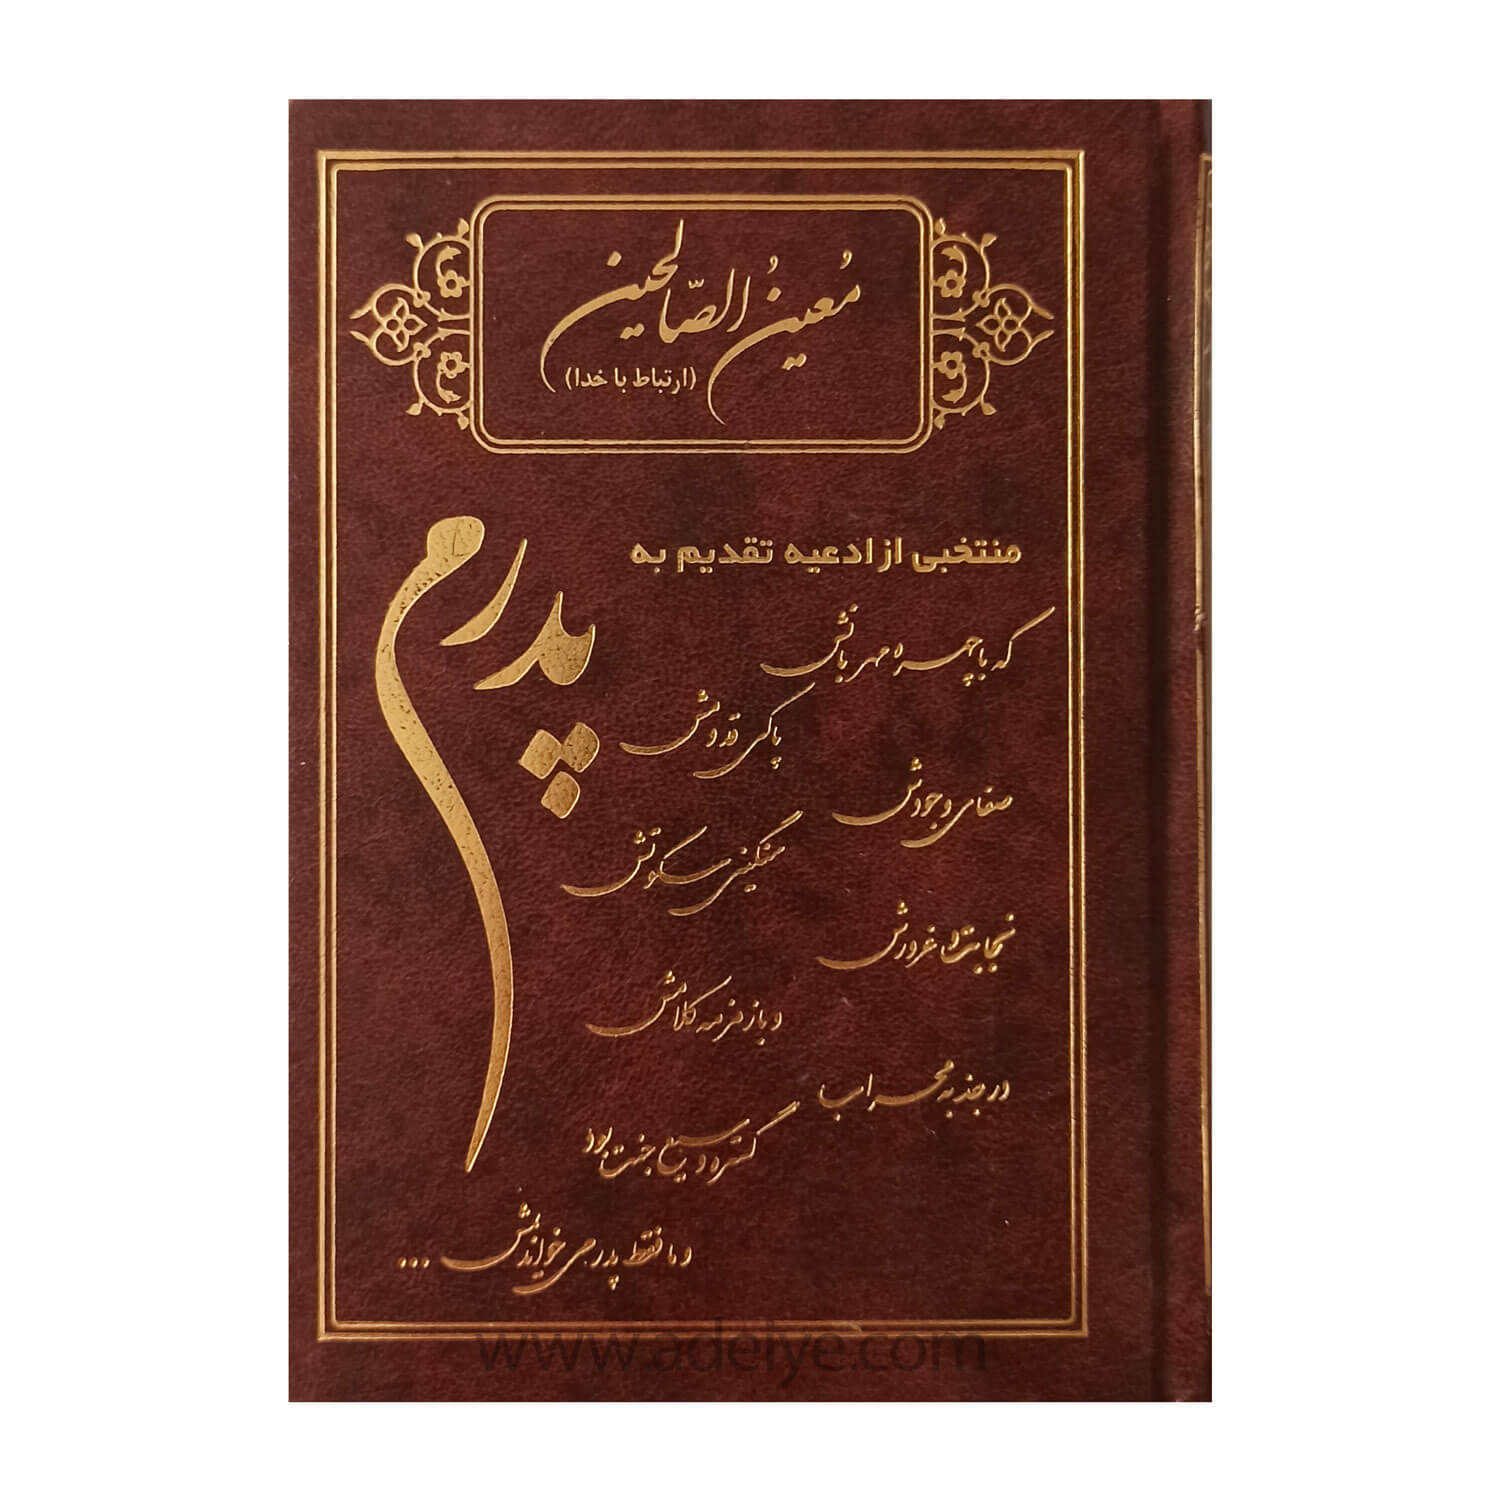 مُعینُ الصّالحین
(ارتباط با خدا)
منتخبی از ادعیه تقدیم به
پدرم
که با چهره مهربانش
پاکی قدومش
صفای وجودش
سنگینی سکوتش
نجابت و غرورش
و باز مزمه کلامش
در جذبه محراب
گستره وسیع جنت بود
و ما فقط پدر می خواندیمش ...
www.adeliye.com